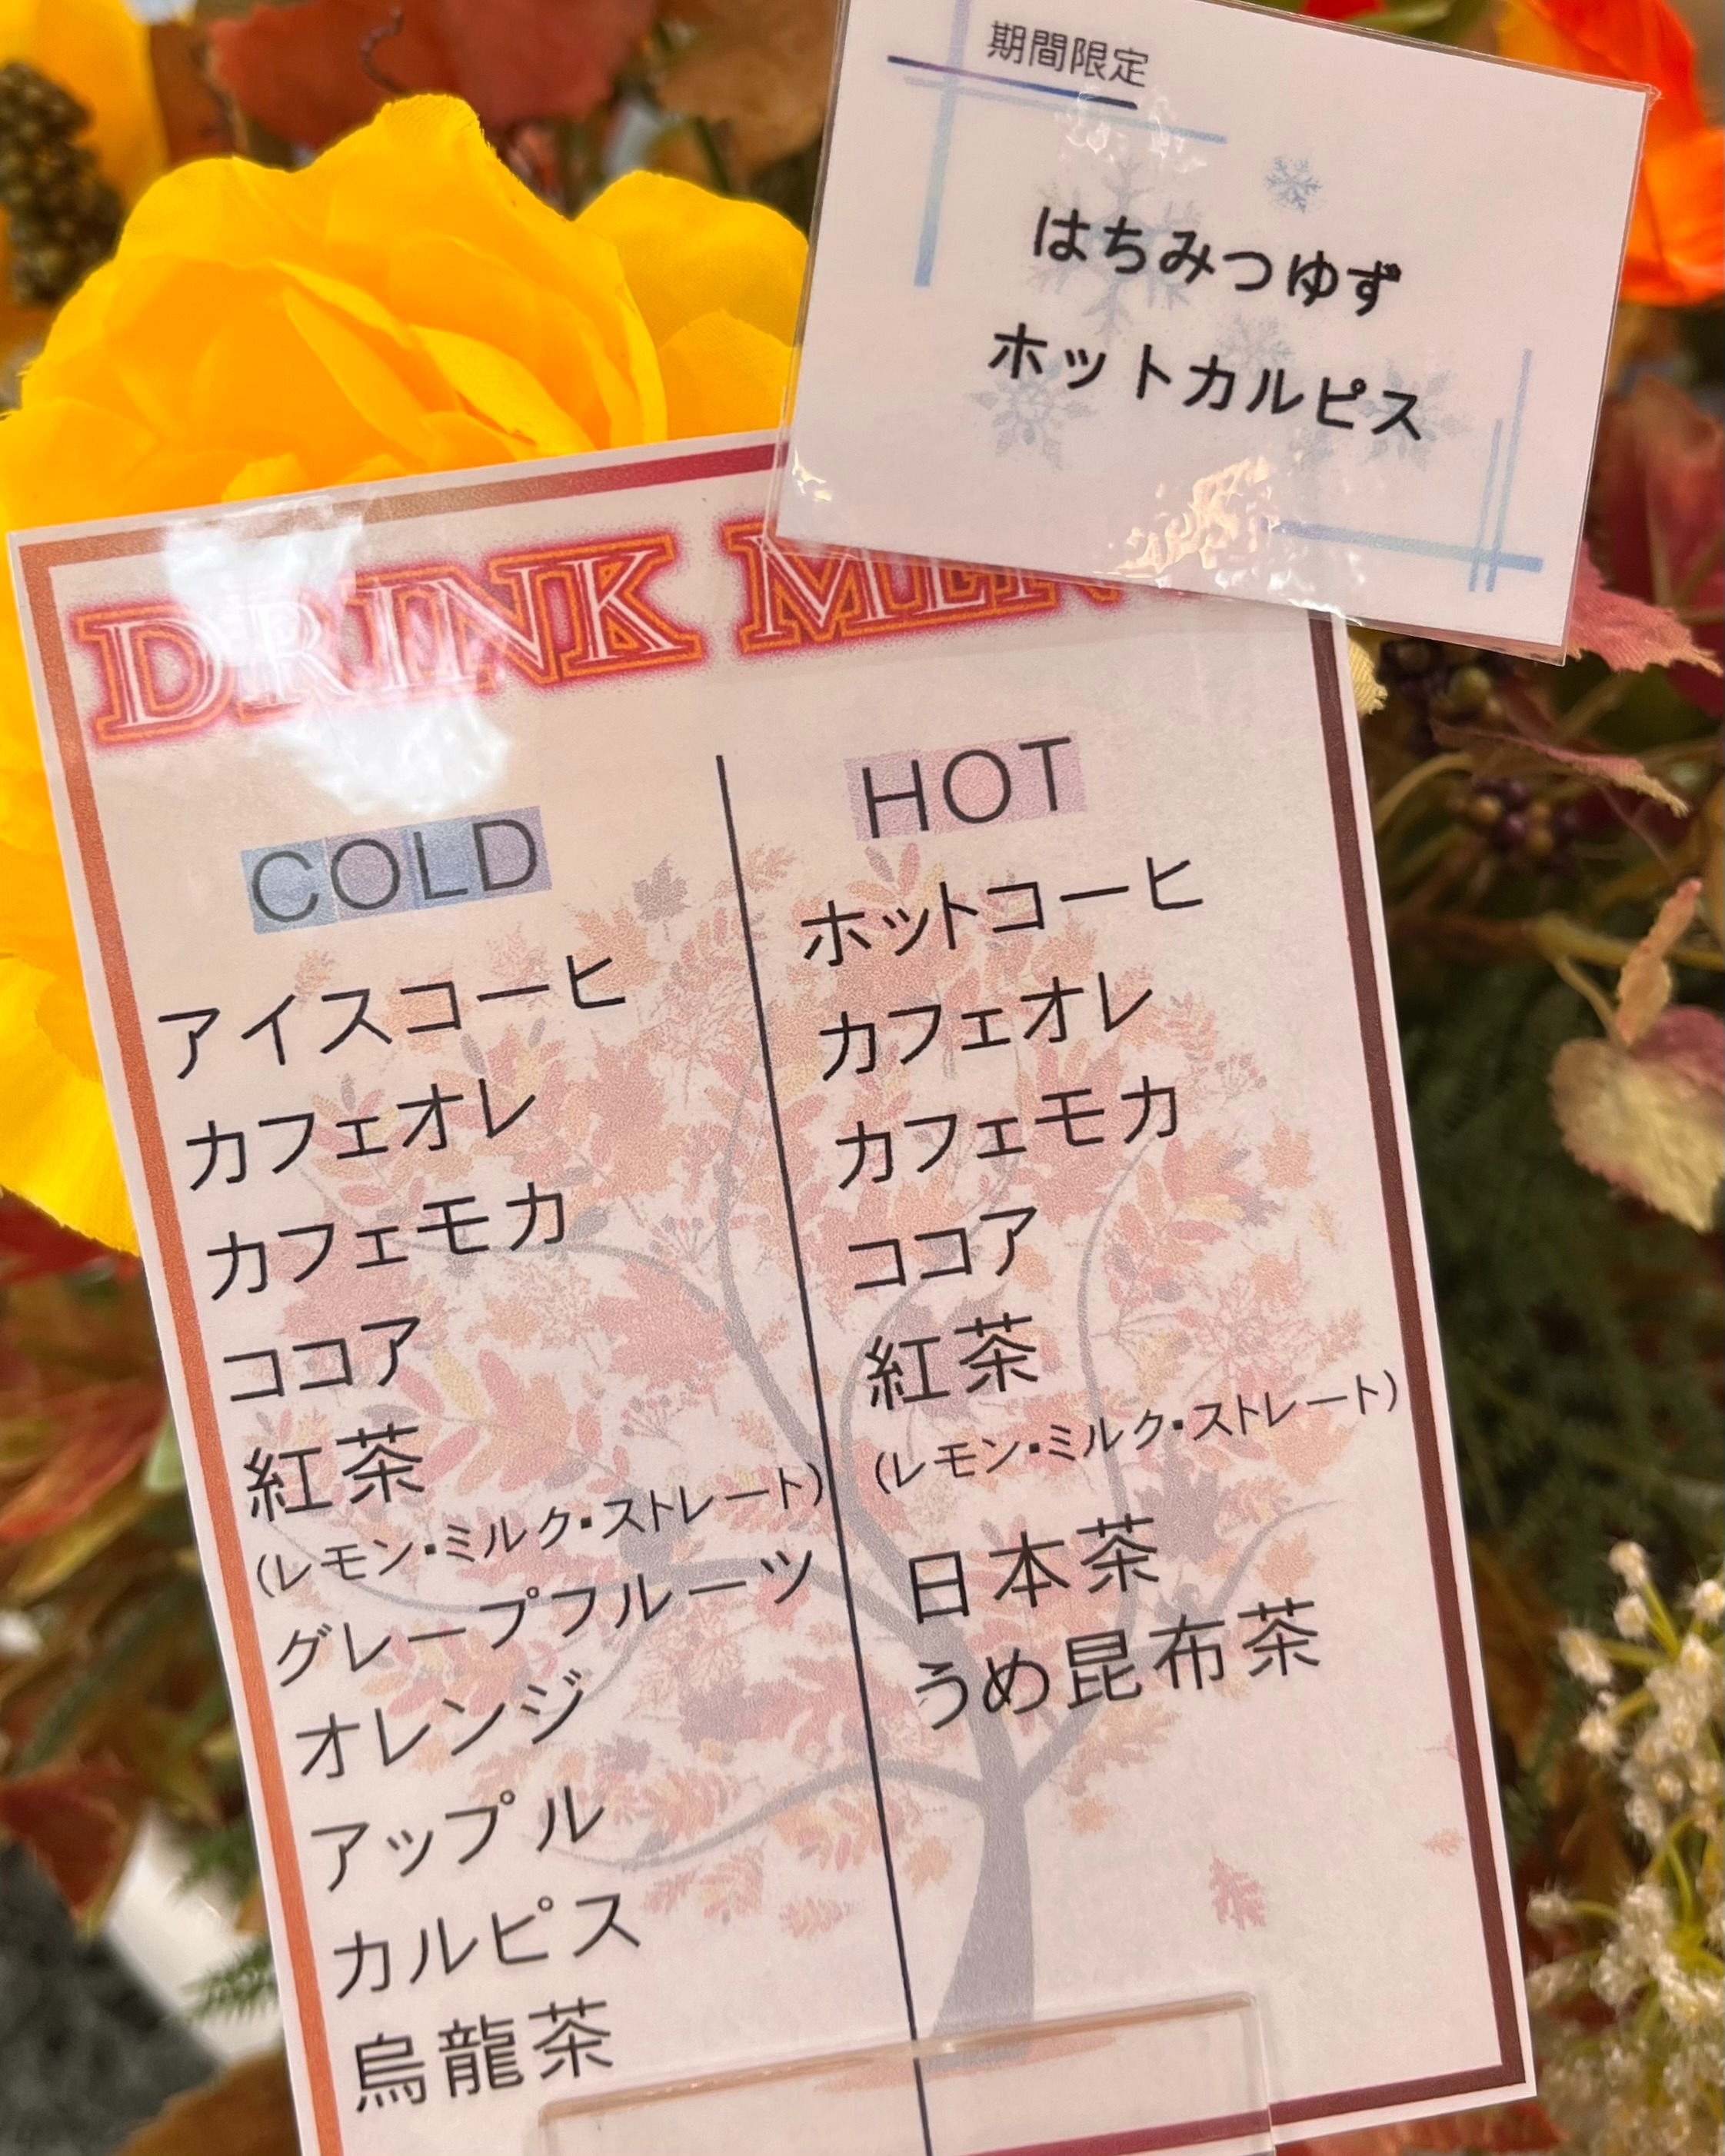 期間限定
はちみつゆず
ホットカルピス
DRINK MEN
COLD
アイスコーヒ
カフェオレ
カフェモカ
ココア
紅茶
(レモン・ミルク・ストレート)
グレープフルーツ
オレンジ
アップル
カルピス
烏龍茶
HOT
ホットコーヒ
カフェオレ
カフェモカ
ココア
紅茶
(レモン・ミルク・ストレート)
日本茶
うめ昆布茶